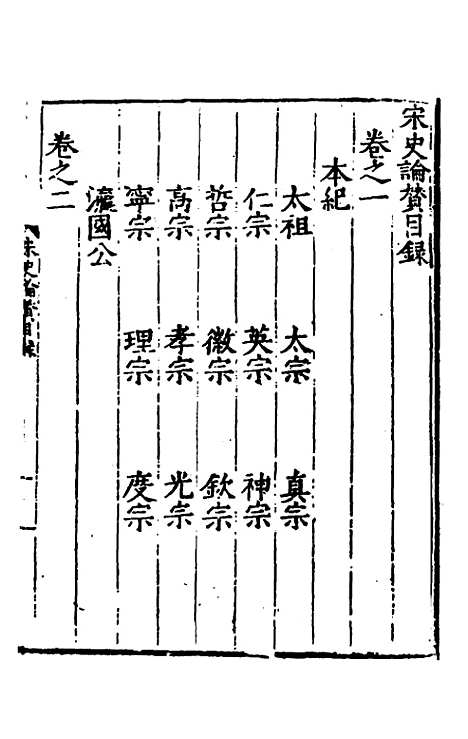 宋史論賛目録
卷之一
本紀
太祖 太宗 真宗
仁宗 英宗 神宗
哲宗 徽宗 欽宗
高宗 孝宗 光宗
寧宗 理宗 度宗
瀛國公
卷之二
宋史論賛目録
一